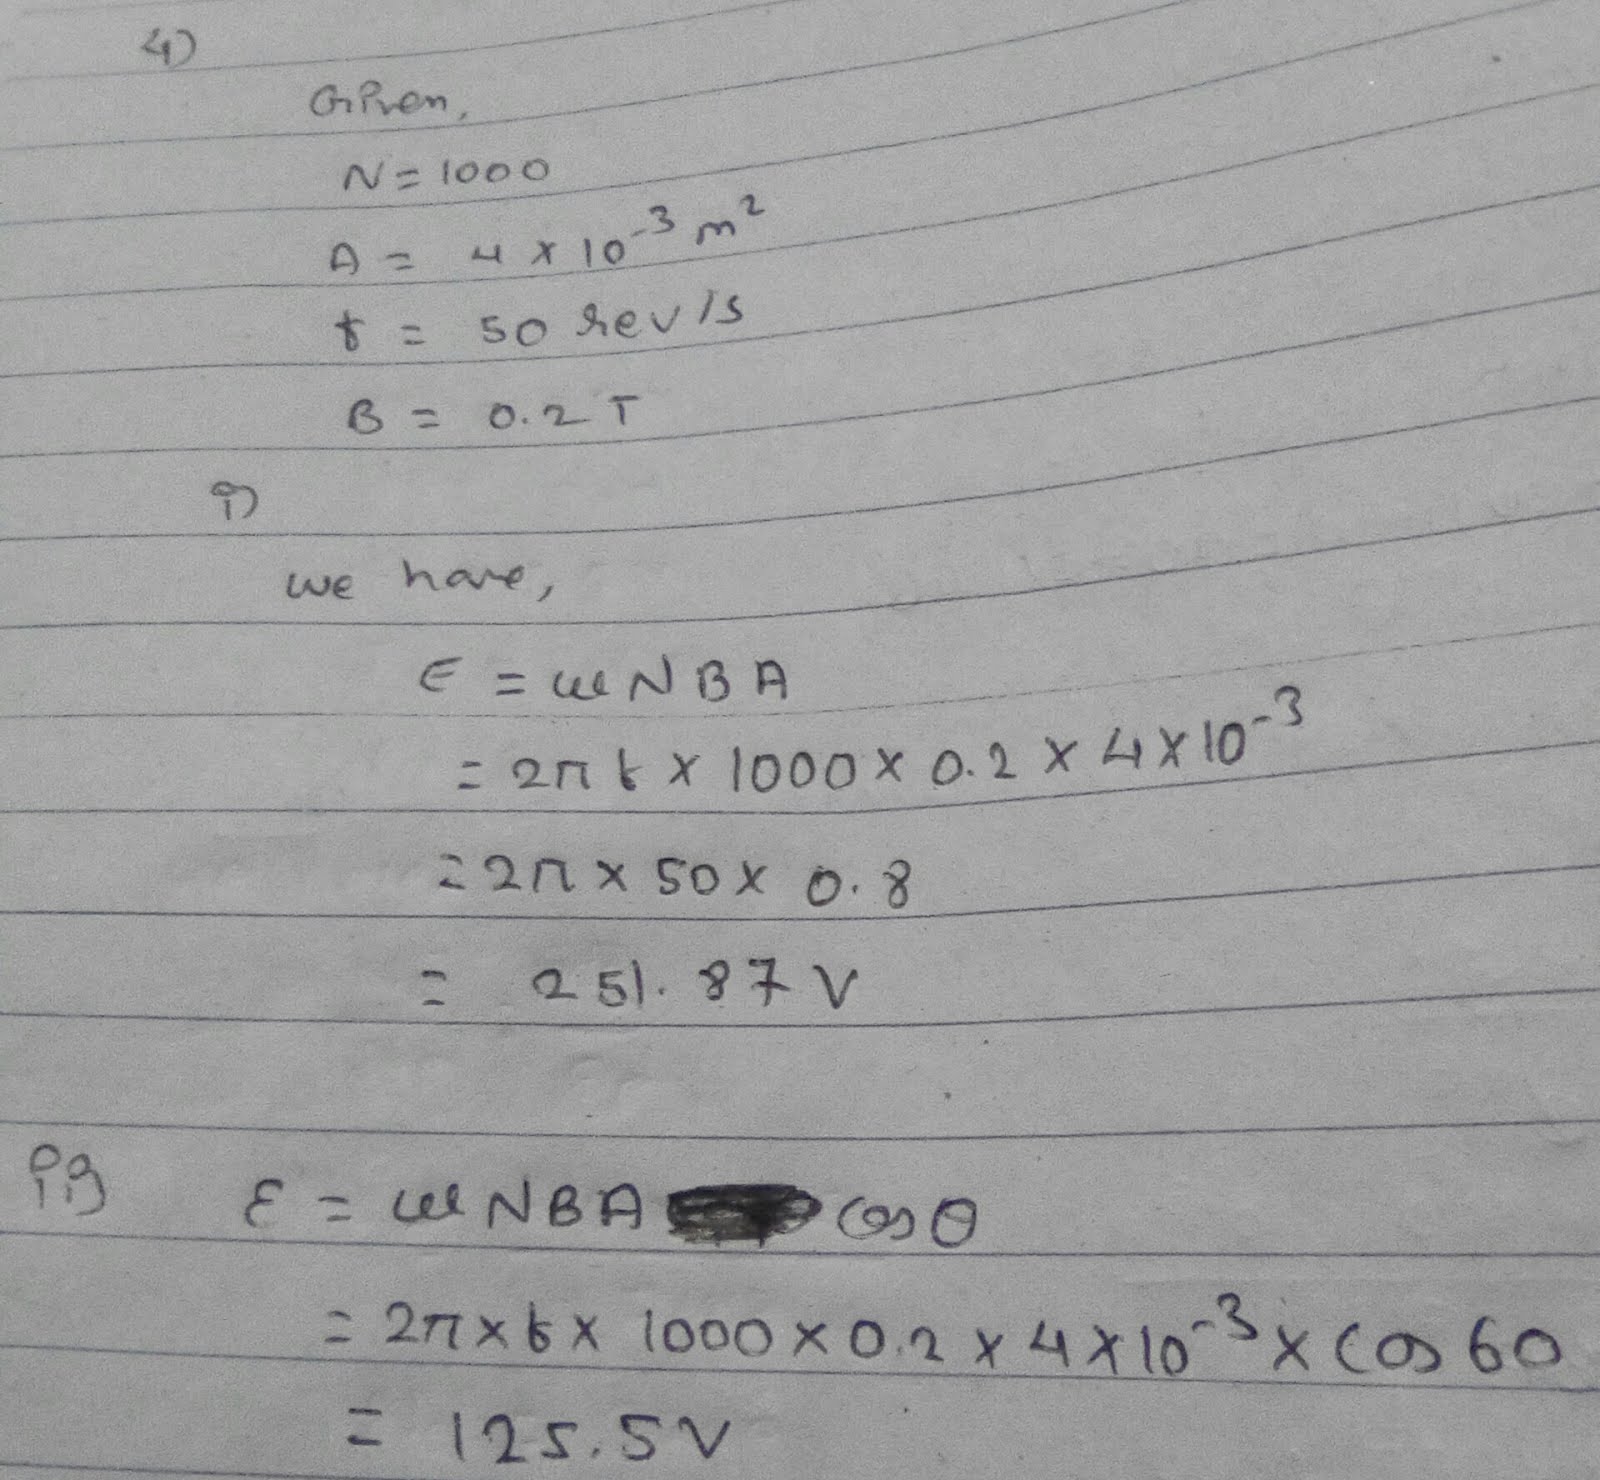 4)
Given,
N = 1000
A = 4 × 10⁻³ m²
f = 50 rev/s
B = 0.2 T
i)
we have,
E = ωNBA
= 2πf × 1000 × 0.2 × 4 × 10⁻³
= 2π × 50 × 0.8
= 251.87 V
ii) E = ωNBA cosθ
= 2π × f × 1000 × 0.2 × 4 × 10⁻³ × cos 60
= 125.5V